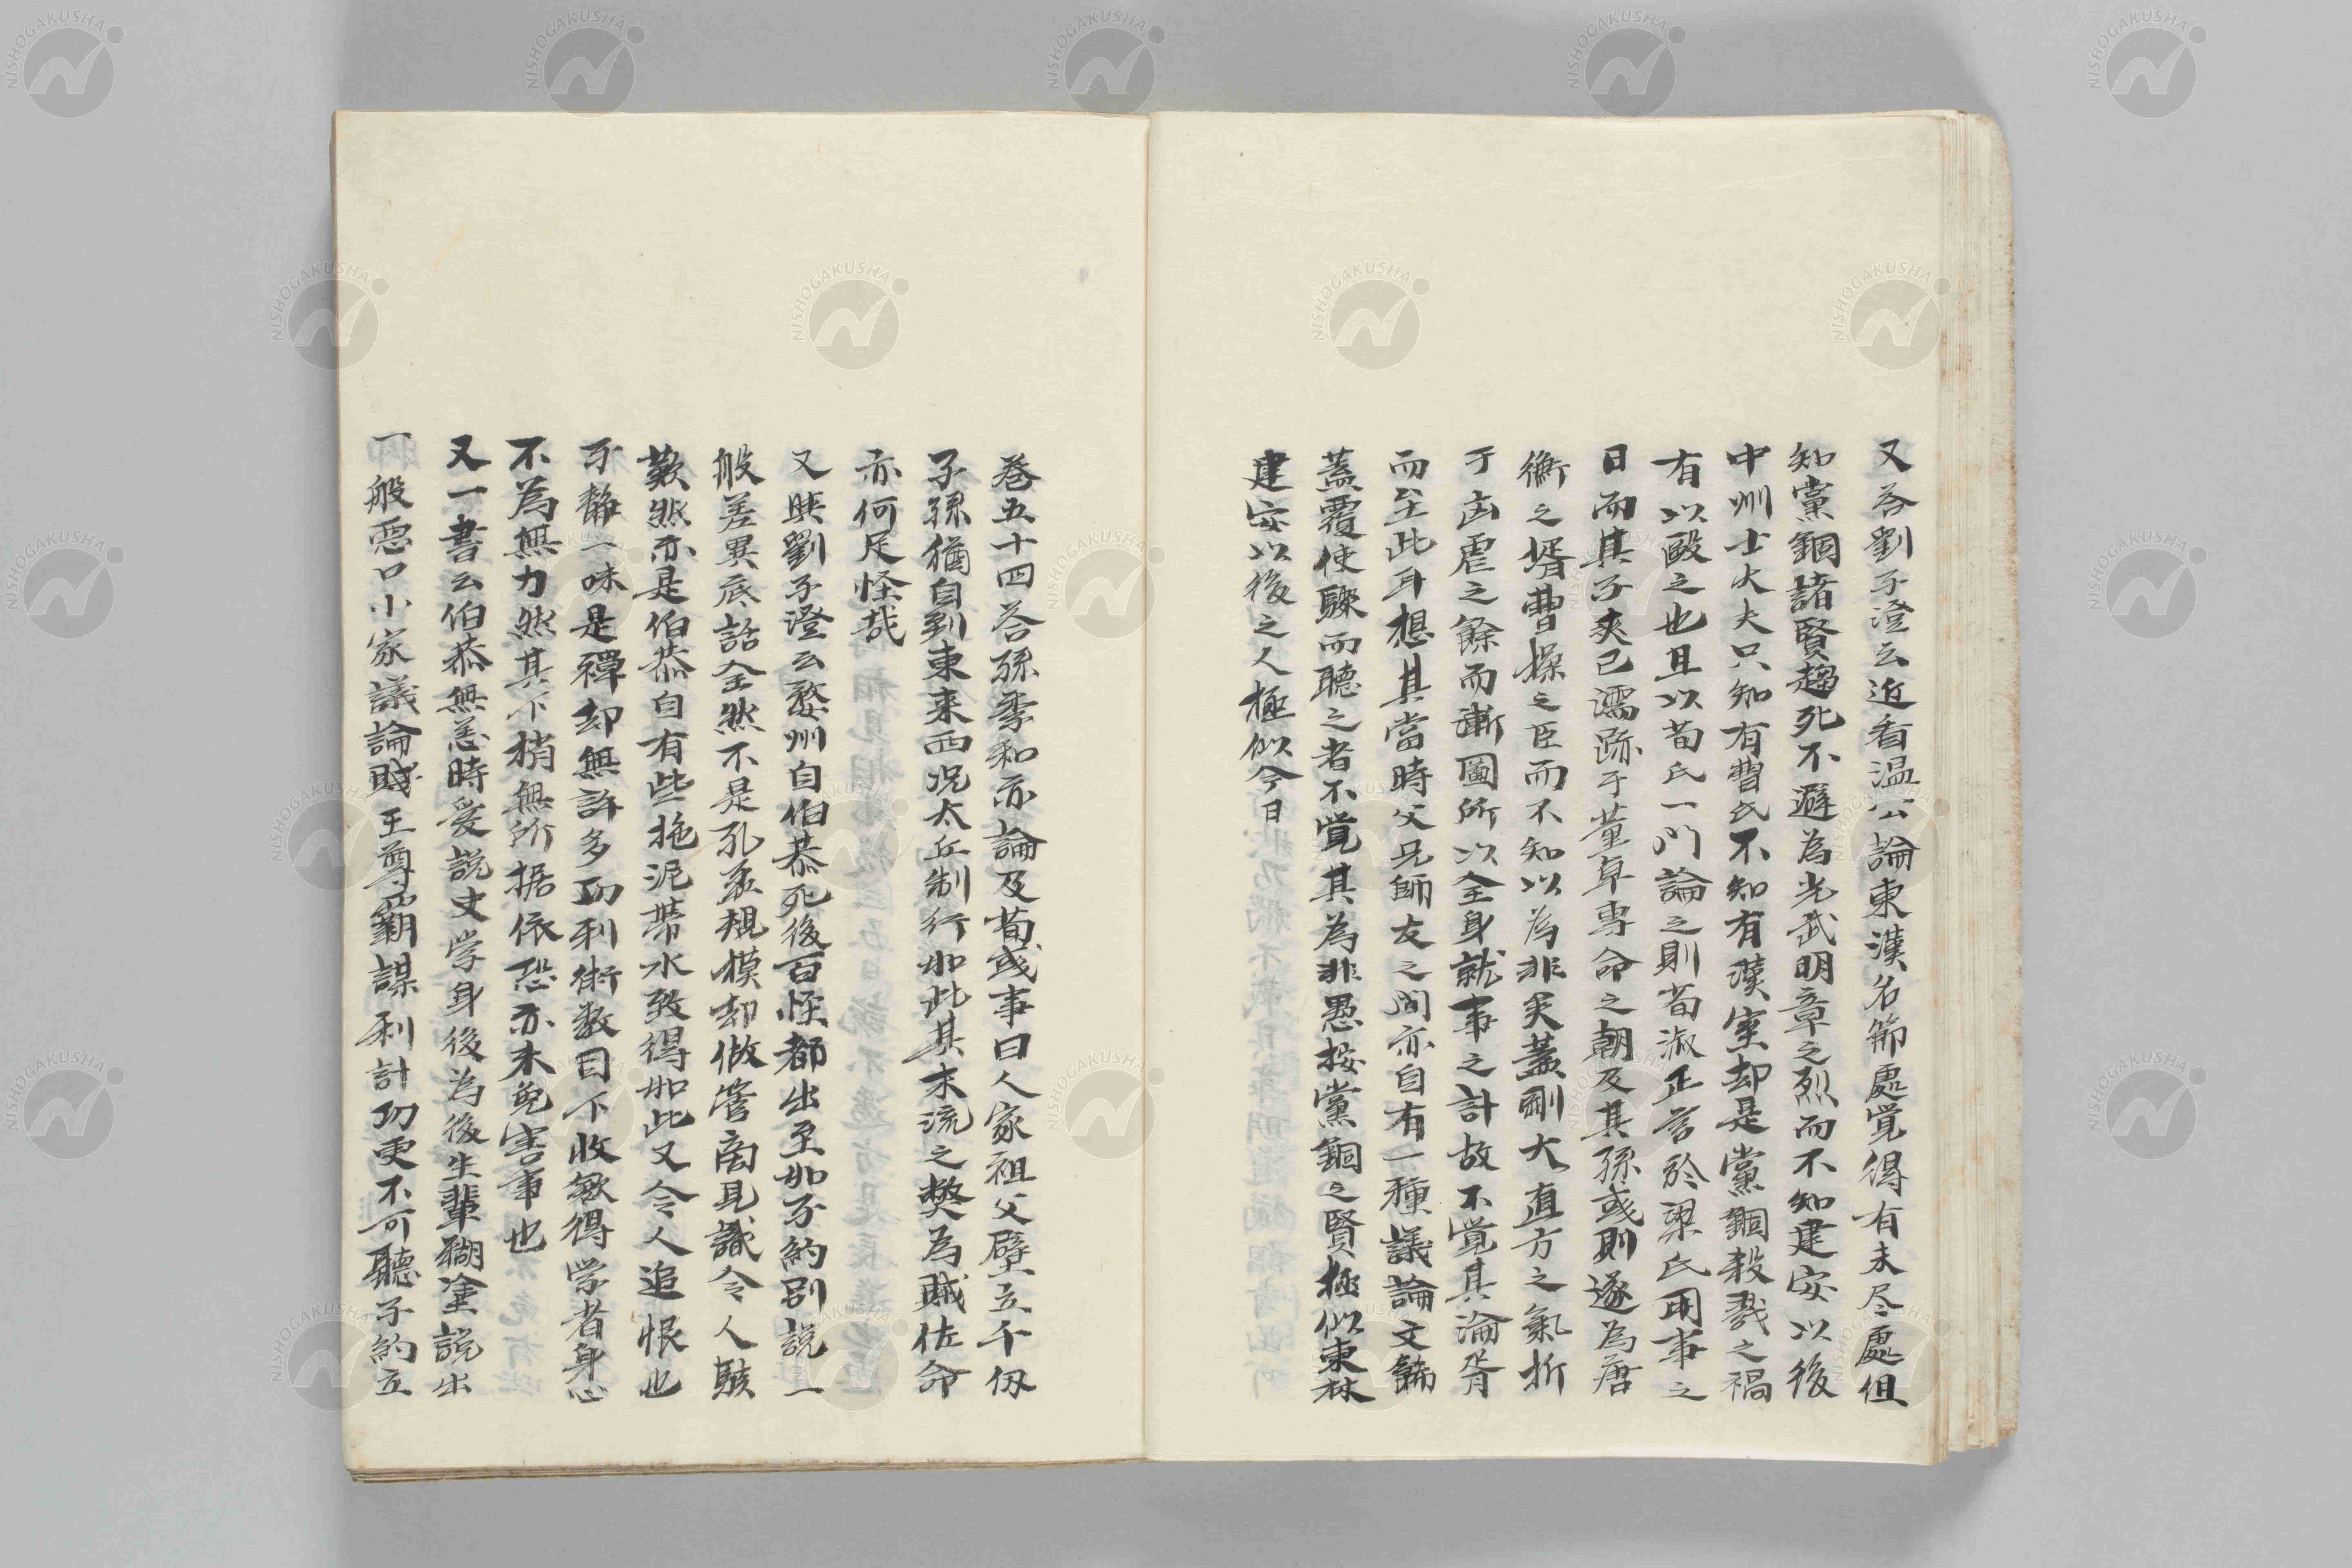 又答劉子澄云近看温公論東漢名節處覚得有未尽處但
知黨錮諸賢趨死不避為光武明章之烈而不知建安以後
中州士大夫只知有曹氏不知有漢室却是黨錮殺戮之禍
有以敺之也且以荀氏一門論之則荀淑正言於梁氏用事之
日而其子爽已濡跡于董卓専命之朝及其孫彧則遂為唐
衡之壻曹操之臣而不知以為非矣蓋剛大直方之氣折
于凶虐之餘而漸圖所以全身就事之計故不覚其淪胥
而至此耳想其當時父兄師友之間亦自有一種議論文飾
蓋覆使驟而聽之者不覚其為非愚按黨錮之賢極似東林
建安以後之人極似今日
巻五十四答孫季和亦論及荀彧事曰人家祖父壁立千仭
子孫猶自到東来西况太丘制行如此其末流之弊為賊佐命
亦何足怪哉
又與劉子澄云婺州自伯恭死後百怪都出至如子約别説一
般差異底話全然不是孔孟規模却做管商見識令人駭
歎然亦是伯恭自有些拖泥帯水致得如此又令人追恨也
子静一味是禪却無許多功利術数目下收斂得学者身心
不為無力然其下梢無所據依恐亦未免害事也
又一書云伯恭無恙時爱説史学身後為後生輩糊塗説出
一般悪口小家議論賤王尊覇謀利計功更不可聽子約立